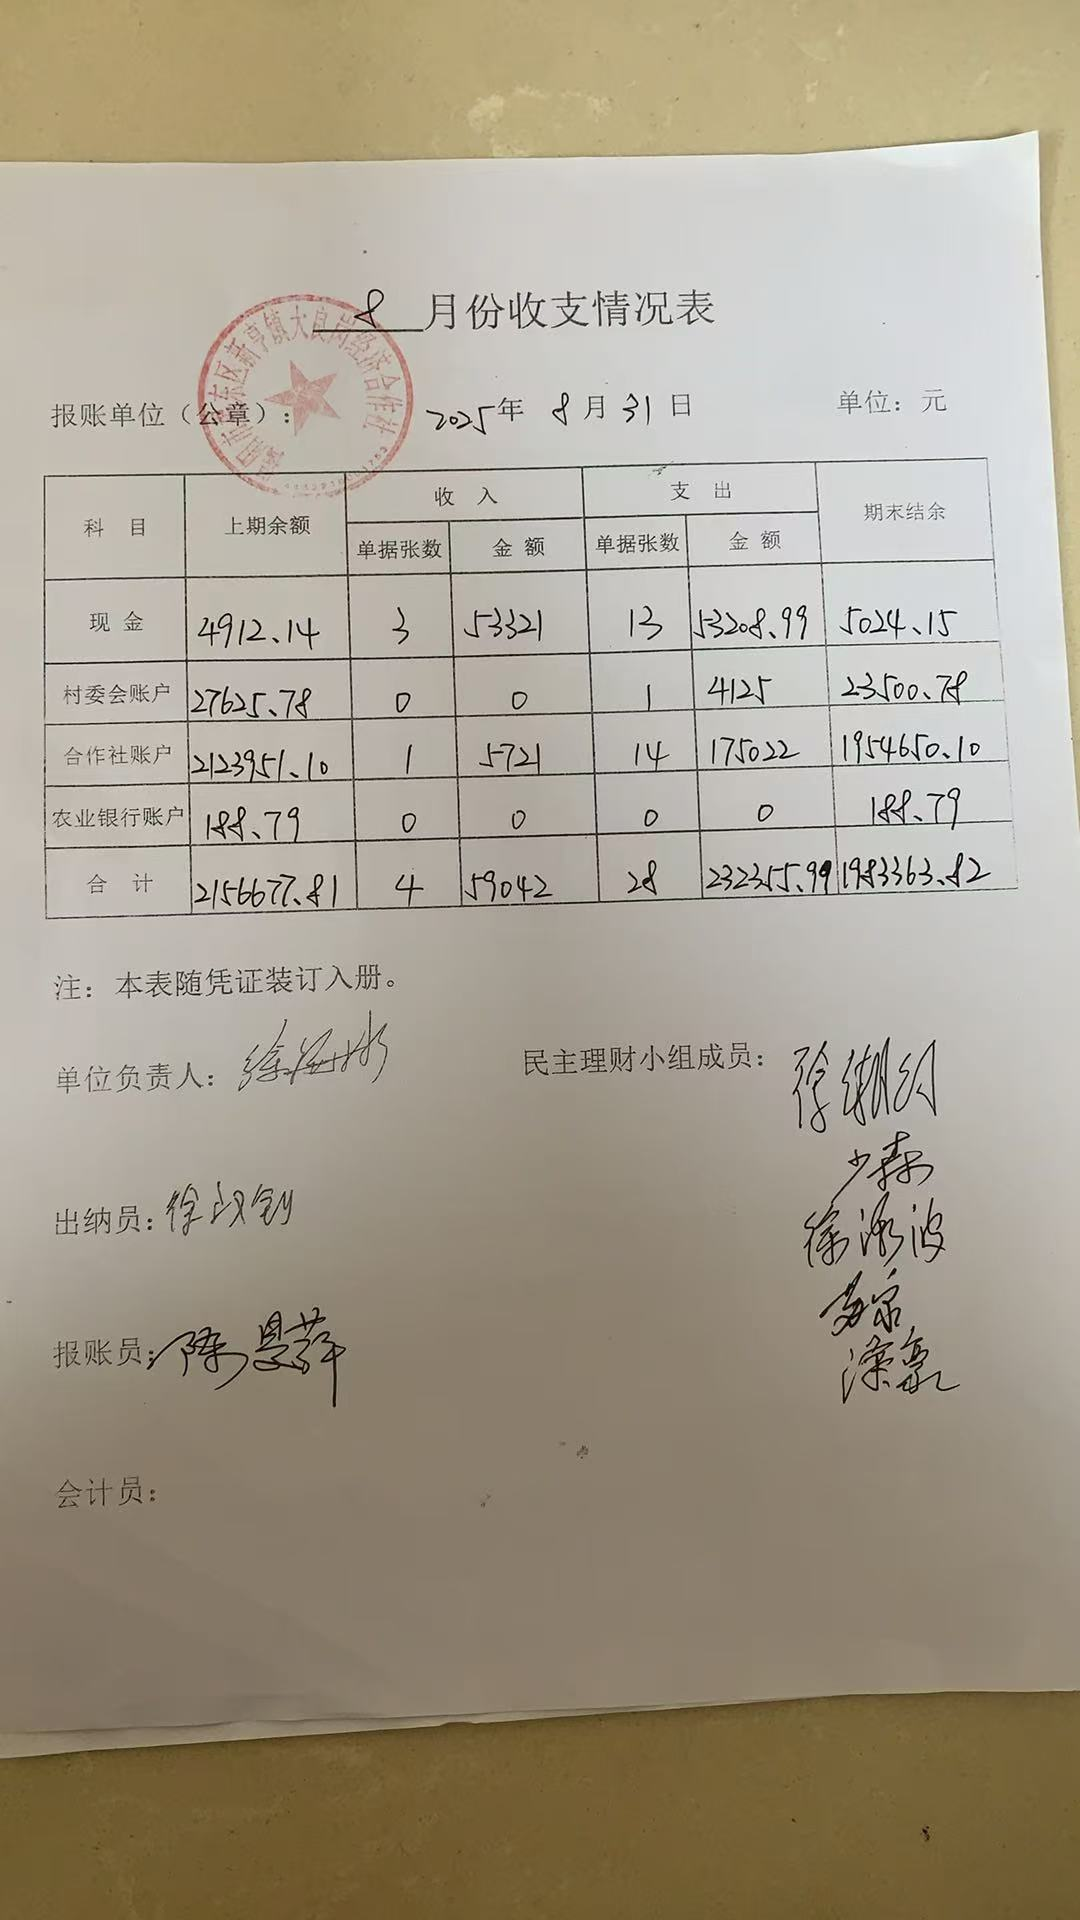 8月份收支情况表
报账单位（公章）： 2025年 8月31日 单位：元
东区新亨镇大良岗经济合作社
科 目 上期余额 收 入 支 出 期末结余
单据张数 金 额 单据张数 金 额
现 金 4912.14 3 53321 13 53208.99 5024.15
村委会账户 27625.78 0 0 1 4125 23500.78
合作社账户 2123951.10 1 5721 14 175022 1954650.10
农业银行账户 188.79 0 0 0 0 188.79
合 计 2156677.81 4 59042 28 232355.99 1983363.82
注：本表随凭证装订入册。
单位负责人：徐
民主理财小组成员：徐
少森
徐 波
出纳员：徐
报账员：陈
会计员：